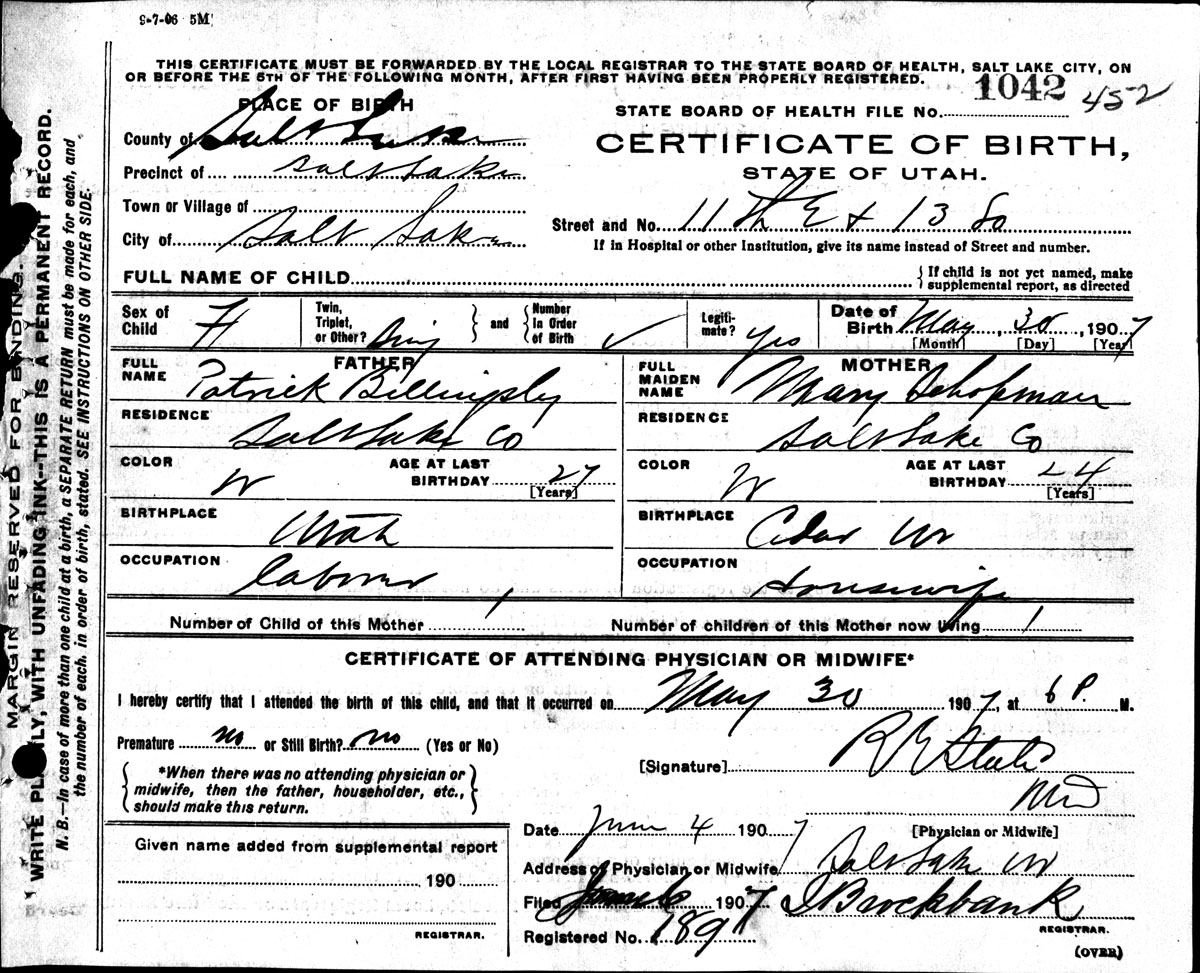 9-7-06 5M
THIS CERTIFICATE MUST BE FORWARDED BY THE LOCAL REGISTRAR TO THE STATE BOARD OF HEALTH, SALT LAKE CITY, ON
OR BEFORE THE 5TH OF THE FOLLOWING MONTH, AFTER FIRST HAVING BEEN PROPERLY REGISTERED.
PLACE OF BIRTH
County of Salt Lake
Precinct of Salt Lake
Town or Village of
City of Salt Lake
STATE BOARD OF HEALTH FILE No. 1042 452
CERTIFICATE OF BIRTH,
STATE OF UTAH.
Street and No. 11th E + 13 So
If in Hospital or other Institution, give its name instead of Street and number.
FULL NAME OF CHILD
If child is not yet named, make
supplemental report, as directed
Sex of Child F
Twin, Triplet, or Other?
and
Number In Order of Birth ✓
Legitimate? Yes
Date of Birth May 30, 1907
[Month] [Day] [Year]
FATHER
FULL NAME Patrick Billingsly
RESIDENCE Salt Lake Co
COLOR W
AGE AT LAST BIRTHDAY 27
[Years]
BIRTHPLACE Utah
OCCUPATION Laborer
MOTHER
FULL MAIDEN NAME Mary Schopman
RESIDENCE Salt Lake Co
COLOR W
AGE AT LAST BIRTHDAY 24
[Years]
BIRTHPLACE Cedar
OCCUPATION Housewife
Number of Child of this Mother 1
Number of children of this Mother now living 1
CERTIFICATE OF ATTENDING PHYSICIAN OR MIDWIFE*
I hereby certify that I attended the birth of this child, and that it occurred on May 30 1907, at 6 P. M.
Premature no or Still Birth? no (Yes or No)
*When there was no attending physician or
midwife, then the father, householder, etc.,
should make this return.
[Signature] R E
MD
[Physician or Midwife]
Date June 4 1907
Address of Physician or Midwife Salt Lake
Filed June 1907 Brockbank
REGISTRAR.
Registered No. 1897
(OVER)
Given name added from supplemental report
190
REGISTRAR.
MARGIN RESERVED FOR BINDING.
WRITE PLAINLY, WITH UNFADING INK--THIS IS A PERMANENT RECORD.
N. B.—In case of more than one child at a birth, a SEPARATE RETURN must be made for each, and
the number of each, in order of birth, stated. SEE INSTRUCTIONS ON OTHER SIDE.